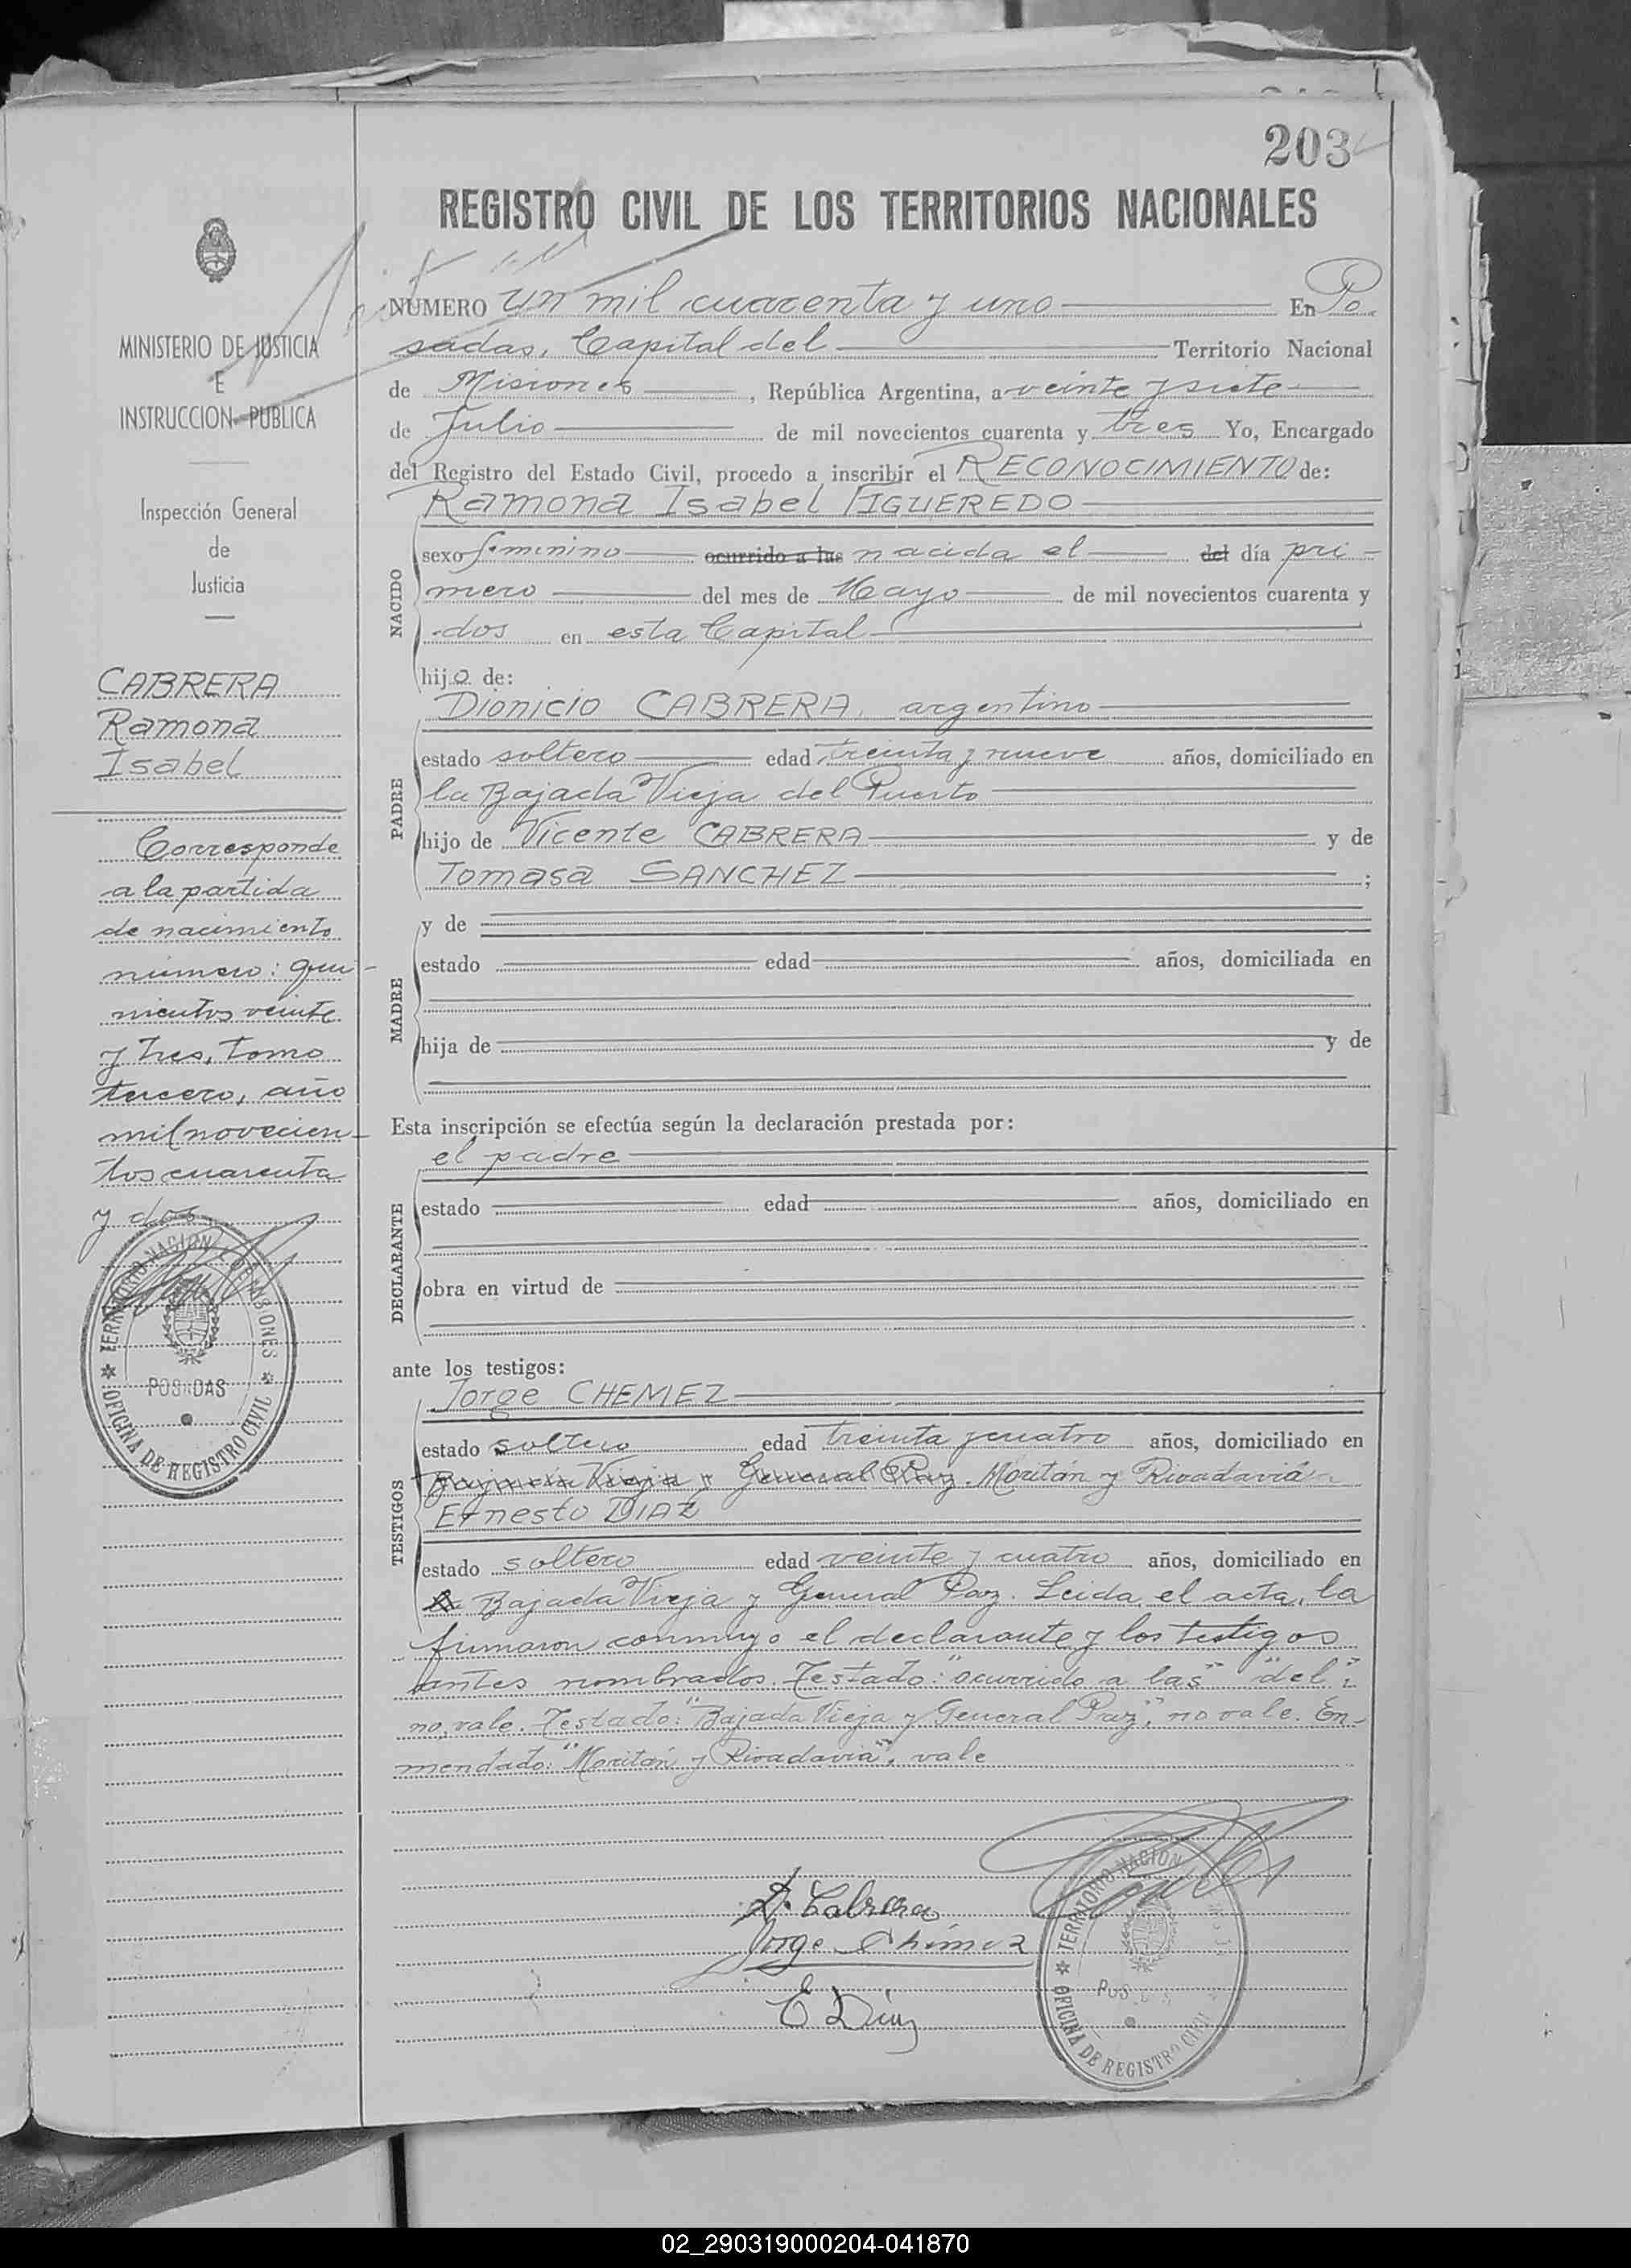 203
REGISTRO CIVIL DE LOS TERRITORIOS NACIONALES
MINISTERIO DE JUSTICIA
E
INSTRUCCION PUBLICA
Inspección General
de
Justicia
CABRERA
Ramona
Isabel
Corresponde
a la partida
de nacimiento
número: qui-
nientos veinte
y tres, tomo
tercero, año
mil novecien-
tos cuarenta
y dos
TERRITORIO NACION DE MISIONES
POSADAS
OFICINA DE REGISTRO CIVIL
NUMERO un mil cuarenta y uno En Po
sadas, Capital del Territorio Nacional
de Misiones, República Argentina, a veinte y siete
de Julio de mil novecientos cuarenta y tres Yo, Encargado
del Registro del Estado Civil, procedo a inscribir el RECONOCIMIENTO de:
Ramona Isabel FIGUEREDO
NACIDO
sexo femenino ocurrido a las nacida el del día pri-
mero del mes de Mayo de mil novecientos cuarenta y
dos en esta Capital
hijo de:
Dionicio CABRERA, argentino
PADRE
estado soltero edad treinta y nueve años, domiciliado en
la Bajada Vieja del Puerto
hijo de Vicente CABRERA y de
Tomasa SANCHEZ ;
MADRE
y de
estado edad años, domiciliada en
hija de y de
Esta inscripción se efectúa según la declaración prestada por:
el padre
DECLARANTE
estado edad años, domiciliado en
obra en virtud de
ante los testigos:
Jorge CHEMEZ
TESTIGOS
estado soltero edad treinta y cuatro años, domiciliado en
Bajada Vieja y General Paz. Moritán y Rivadavia
Ernesto DIAZ
estado soltero edad veinte y cuatro años, domiciliado en
Bajada Vieja y General Paz. Leida el acta, la
firmaron conmigo el declarante y los testigos
antes nombrados. Testado: "ocurrido a las" "del";
no vale. Testado: "Bajada Vieja y General Paz", no vale. En-
mendado: "Moritán y Rivadavia", vale
D. Cabrera
Jorge Chemez
E Diaz
TERRITORIO NACION
POS
OFICINA DE REGISTRO CIVIL
02_290319000204-041870